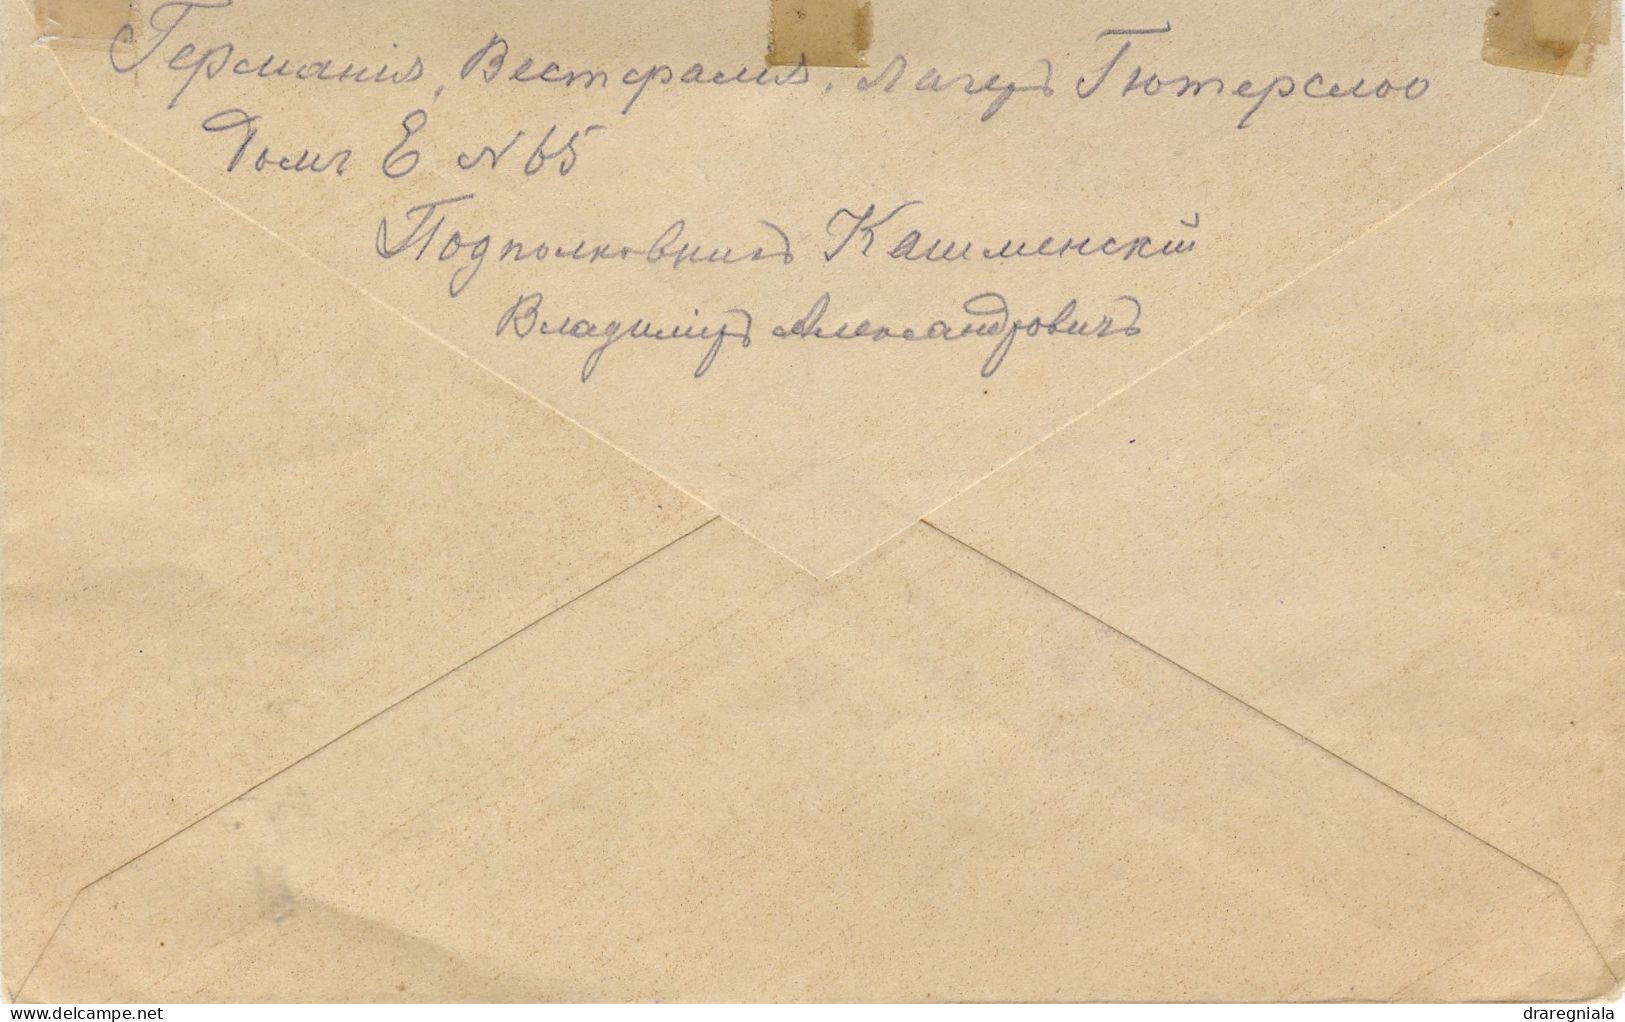 Германія, Вестфалия, Лагерь Гютерслоо
Домъ Е N 65
Подполковникъ Кашменскій
Владиміръ Александровичъ
www.delcampe.net
draregniala